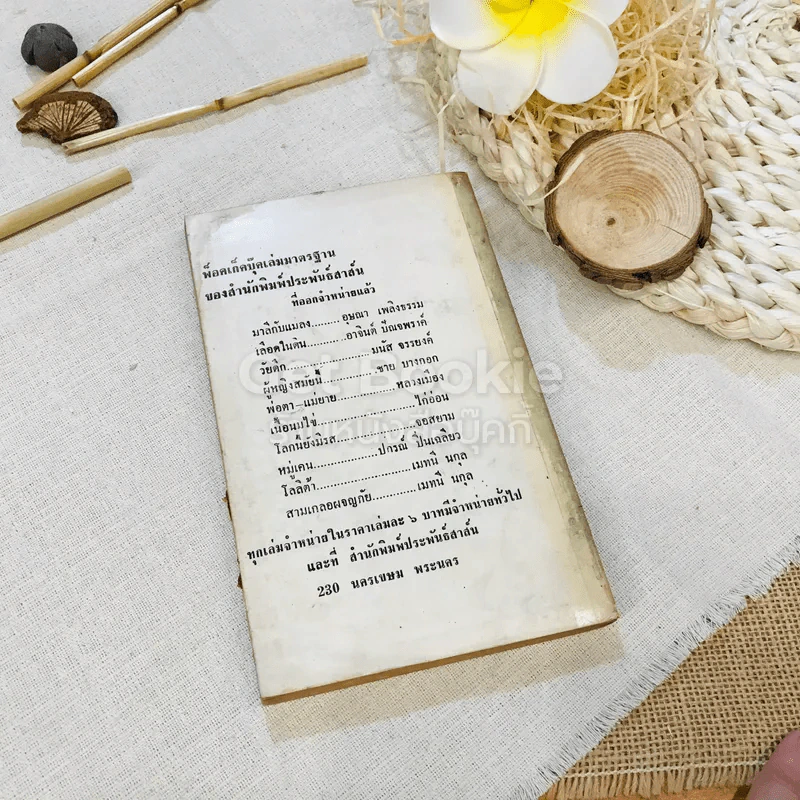 พ็อคเก็ตบุ๊คเล่มมาตรฐาน
ของสำนักพิมพ์ประพันธ์สาส์น
ที่ออกจำหน่ายแล้ว
มาลีกับแมลง........อุษณา เพลิงธรรม
เลือดในดิน...........อาจินต์ ปัญจพรรค์
วัยดึก......................มนัส จรรยงค์
ผู้หญิงสมัยนี้..............ชาย บางกอก
พ่อตา–แม่ยาย...............หลวงเมือง
เนื้อนมไข่.........................ไก่อ่อน
โลกนี้ยังมีรส....................จอสยาม
หมู่เคน................ปกรณ์ ปิ่นเฉลียว
โลลิต้า........................เมทนี นกุล
สามเกลอผจญภัย............เมทนี นกุล
ทุกเล่มจำหน่ายในราคาเล่มละ ๖ บาทมีจำหน่ายทั่วไป
และที่ สำนักพิมพ์ประพันธ์สาส์น
230 นครเขษม พระนคร
Get Bookie
ร้านหนังสือบุ๊คกี้